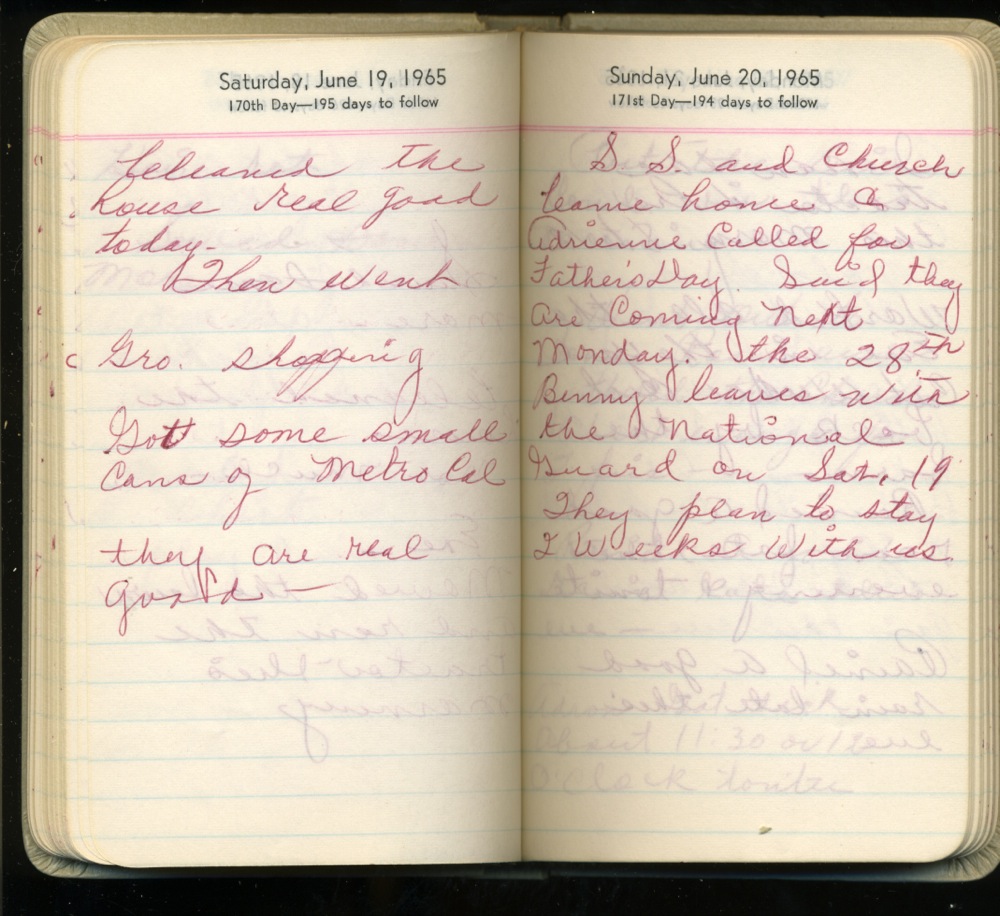 Saturday, June 19, 1965
170th Day—195 days to follow
Cleaned the
house real good
today-
Then went
Gro. shopping
Got some small
Cans of Metro Cal
they are real
good—
Sunday, June 20, 1965
171st Day—194 days to follow
S. S. and Church
Came home &
Adrienne Called for
Father's Day. Said they
are Coming Next
Monday. the 28th
Benny leaves with
the National
Guard on Sat. 19
They plan to stay
2 Weeks With us.